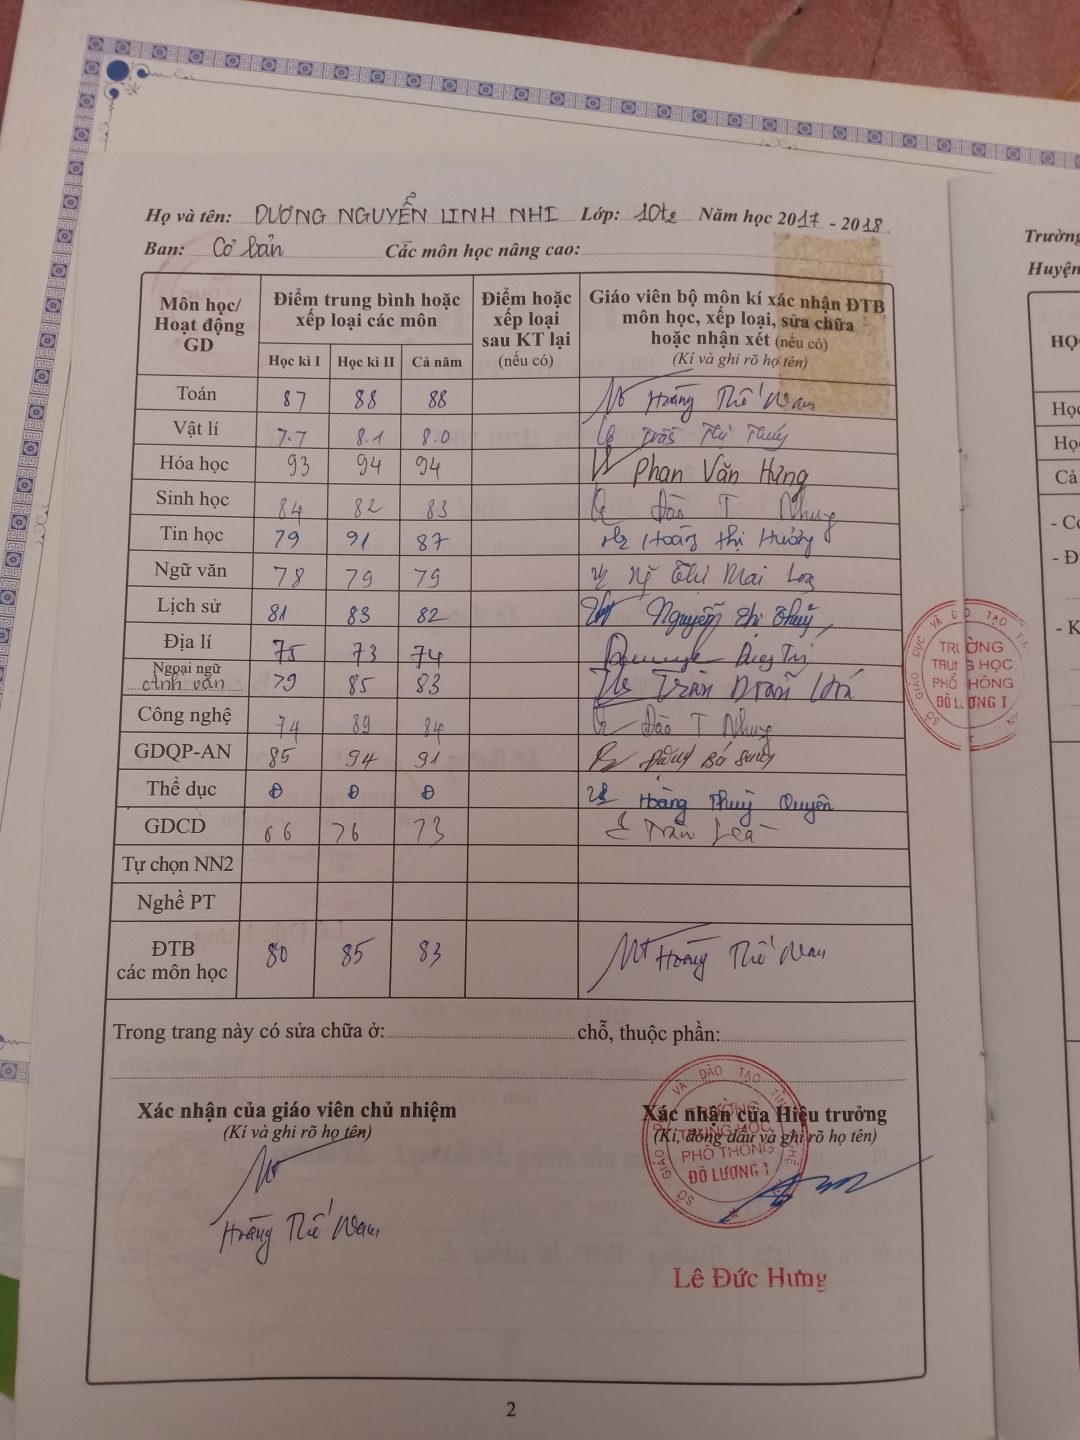 Họ và tên: DƯƠNG NGUYỄN LINH NHI Lớp: 10t2 Năm học 2017 - 2018
Ban: Cơ bản Các môn học nâng cao:
Môn học/ Hoạt động GD
Điểm trung bình hoặc xếp loại các môn
Điểm hoặc xếp loại sau KT lại (nếu có)
Giáo viên bộ môn kí xác nhận ĐTB môn học, xếp loại, sửa chữa hoặc nhận xét (nếu có)
(Kí và ghi rõ họ tên)
Học kì I Học kì II Cả năm
Toán 87 88 88 Hoàng Thế Nam
Vật lí 7.7 8.1 8.0 Trần Thị Thúy
Hóa học 93 94 94 Phan Văn Hưng
Sinh học 84 82 83 Đào T Nhung
Tin học 79 91 87 Hoàng Thị Hường
Ngữ văn 78 79 79 Thị Mai
Lịch sử 81 83 82 Nguyễn Thị Thuỷ
Địa lí 75 73 74
Ngoại ngữ
Anh văn 79 85 83 Trần
Công nghệ 74 89 84 Đào T Nhung
GDQP-AN 85 94 91 Bá
Thể dục Đ Đ Đ Hoàng Thuý Quyên
GDCD 66 76 73 Trần
Tự chọn NN2
Nghề PT
ĐTB các môn học 80 85 83 Hoàng Thế Nam
Trong trang này có sửa chữa ở: chỗ, thuộc phần:
Xác nhận của giáo viên chủ nhiệm
(Kí và ghi rõ họ tên)
Hoàng Thế Nam
Xác nhận của Hiệu trưởng
(Kí, đóng dấu và ghi rõ họ tên)
SỞ GIÁO DỤC VÀ ĐÀO TẠO TỈNH NGHỆ AN
TRƯỜNG
TRUNG HỌC
PHỔ THÔNG
ĐÔ LƯƠNG I
Lê Đức Hưng
2
Trường
Huyện
HỌ
Học
Học
Cả
SỞ GIÁO DỤC VÀ ĐÀO TẠO
TRƯỜNG
TRUNG HỌC
PHỔ THÔNG
ĐÔ LƯƠNG I